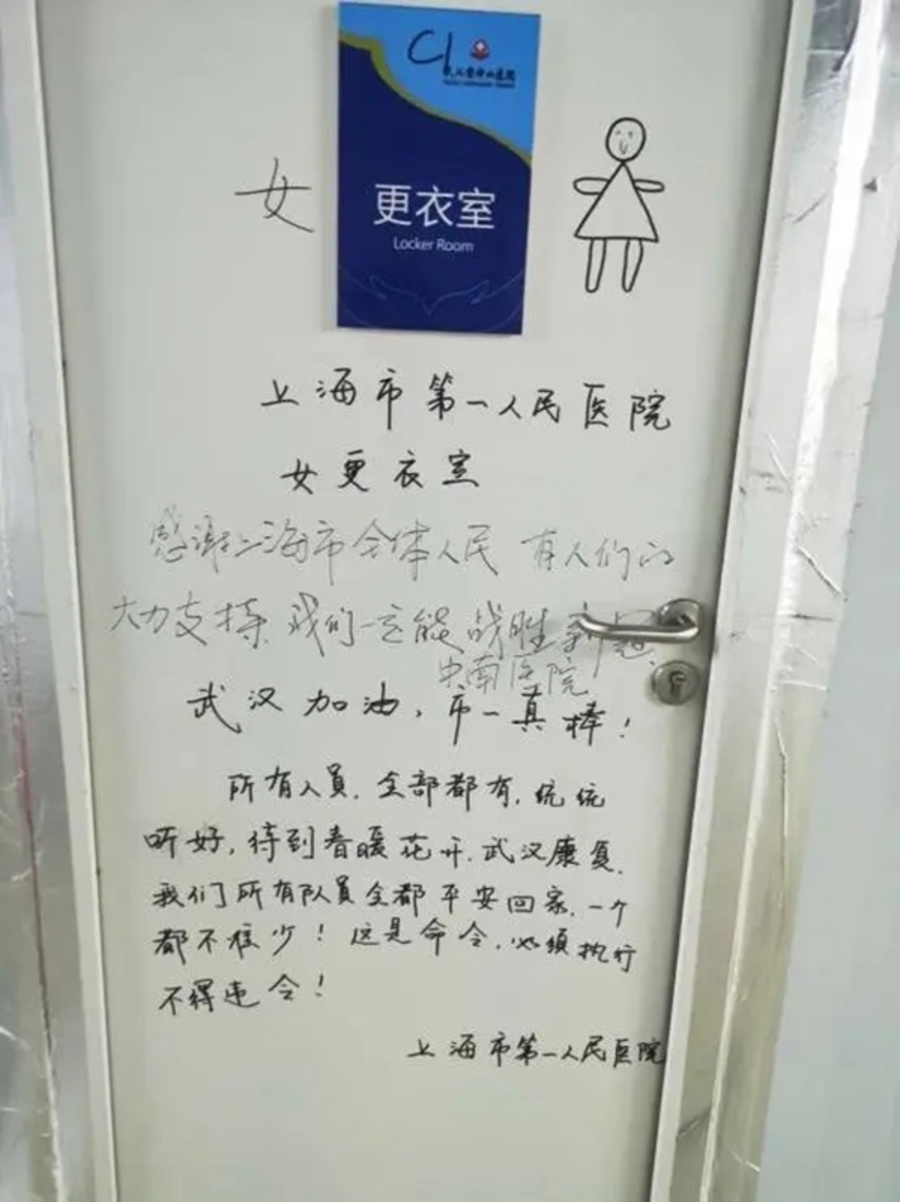 C1
女
更衣室
Locker Room
上海市第一人民医院
女更衣室
感谢上海市全体人民 有人们的
大力支持、我们一定能战胜新冠.
中南医院
武汉加油，市一真棒！
所有人员，全部都有，统统
听好，待到春暖花开，武汉康复，
我们所有队员全都平安回家，一个
都不准少！这是命令，必须执行
不得违令！
上海市第一人民医院